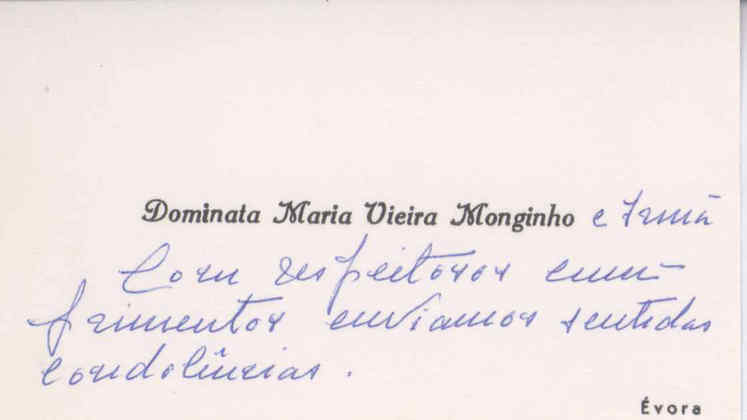 Dominata Maria Vieira Monginho e Irmã
Com respeitosos cum-
primentos enviamos sentidas
condolências.
Évora